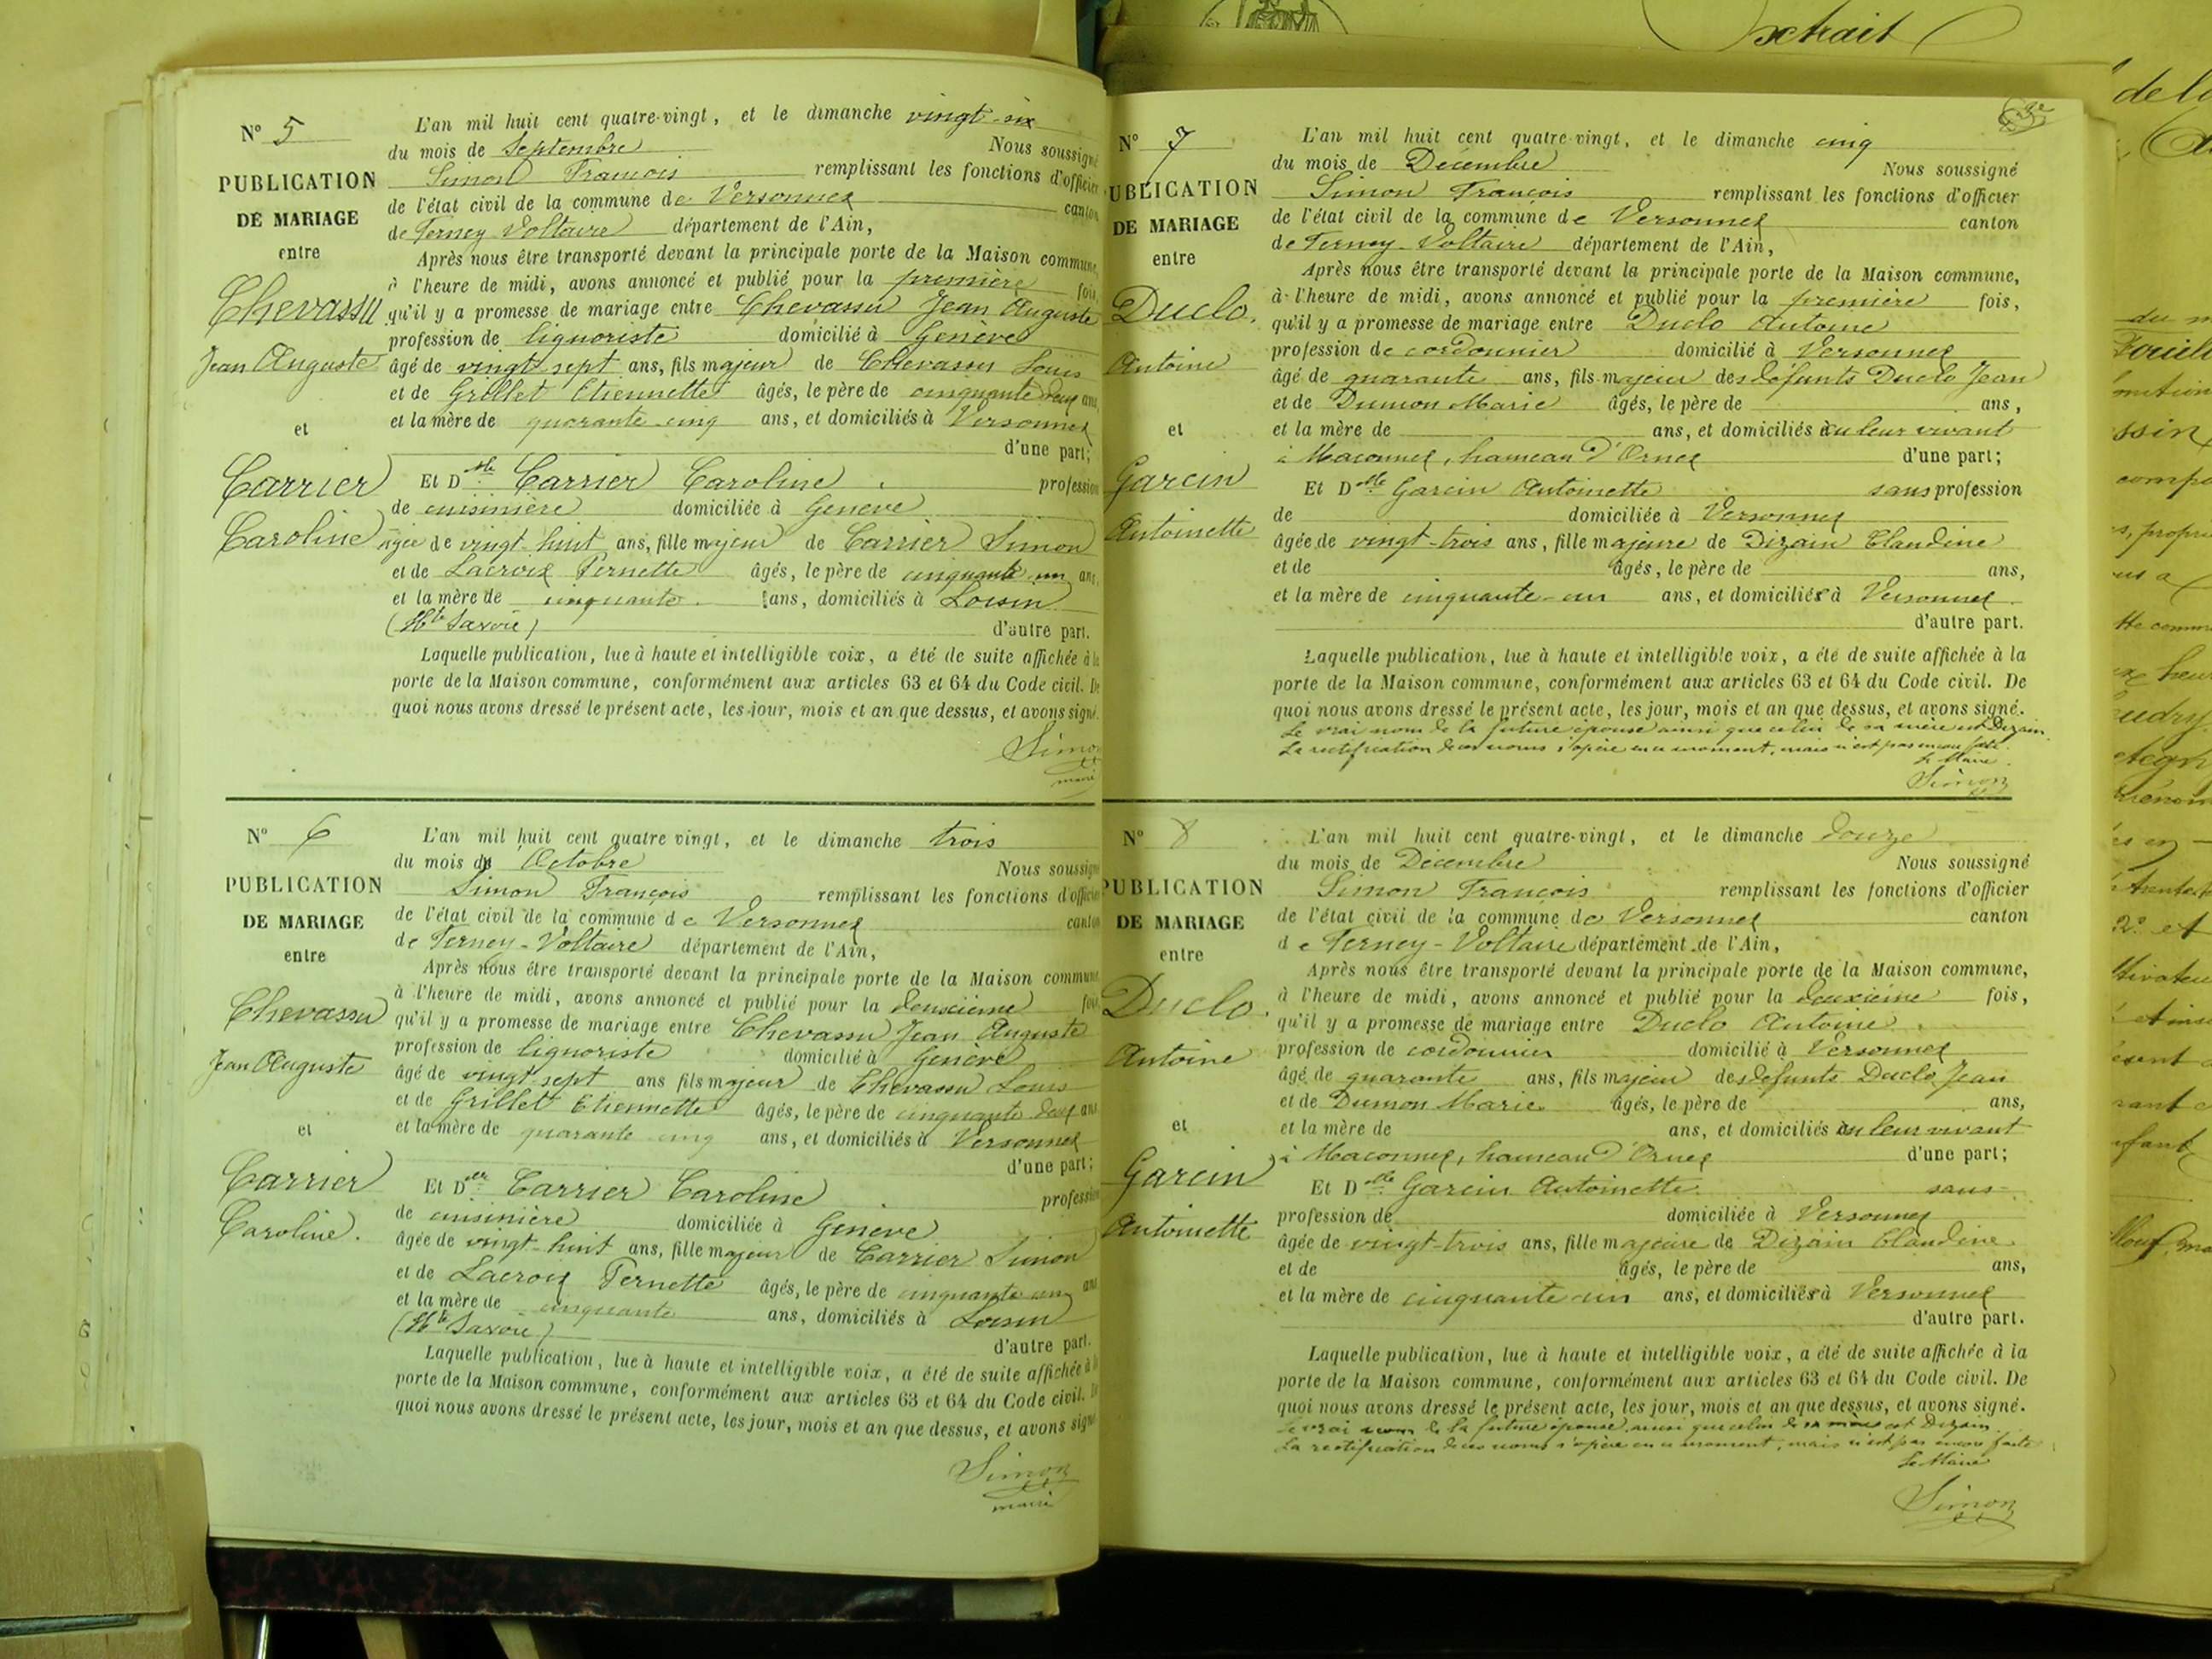 N° 5
PUBLICATION
DE MARIAGE
entre
Chevassu
Jean Auguste
et
Carrier
Caroline
L'an mil huit cent quatre-vingt, et le dimanche vingt-six
du mois de Septembre Nous soussigné
Simon François remplissant les fonctions d'officier
de l'état civil de la commune de Versonnex canton
de Ferney Voltaire département de l'Ain,
Après nous être transporté devant la principale porte de la Maison commune,
à l'heure de midi, avons annoncé et publié pour la première fois,
qu'il y a promesse de mariage entre Chevassu Jean Auguste
profession de liquoriste domicilié à Genève
âgé de vingt sept ans, fils majeur de Chevassu Louis
et de Grillet Etiennette âgés, le père de cinquante deux ans,
et la mère de quarante cinq ans, et domiciliés à Versonnex
d'une part;
Et Dlle Carrier Caroline profession
de cuisinière domiciliée à Genève
âgée de vingt-huit ans, fille majeur de Carrier Simon
et de Lacroix Pernette âgés, le père de cinquante un ans,
et la mère de cinquante ans, domiciliés à Loisin
(Hte Savoie) d'autre part.
Laquelle publication, lue à haute et intelligible voix, a été de suite affichée à la
porte de la Maison commune, conformément aux articles 63 et 64 du Code civil. De
quoi nous avons dressé le présent acte, les jour, mois et an que dessus, et avons signé.
Simon
maire
N° 6
PUBLICATION
DE MARIAGE
entre
Chevassu
Jean Auguste
et
Carrier
Caroline.
L'an mil huit cent quatre vingt, et le dimanche trois
du mois d' Octobre Nous soussigné
Simon François remplissant les fonctions d'officier
de l'état civil de la commune de Versonnex canton
de Ferney-Voltaire département de l'Ain,
Après nous être transporté devant la principale porte de la Maison commune
à l'heure de midi, avons annoncé et publié pour la deuxième fois
qu'il y a promesse de mariage entre Chevassu Jean Auguste
profession de liquoriste domicilié à Genève
âgé de vingt sept ans fils majeur de Chevassu Louis
et de Grillet Etiennette âgés, le père de cinquante deux ans
et la mère de quarante cinq ans, et domiciliés à Versonnex
d'une part;
Et D Carrier Caroline profession
de cuisinière domiciliée à Genève
âgée de vingt-huit ans, fille majeur de Carrier Simon
et de Lacroix Pernette âgés, le père de cinquante un ans
et la mère de cinquante ans, domiciliés à Loisin
(Hte Savoie) d'autre part.
Laquelle publication, lue à haute et intelligible voix, a été de suite affichée à la
porte de la Maison commune, conformément aux articles 63 et 64 du Code civil. De
quoi nous avons dressé le présent acte, les jour, mois et an que dessus, et avons signé
Simon
maire
N° 7
PUBLICATION
DE MARIAGE
entre
Duclo.
Antoine
et
Garcin
Antoinette
L'an mil huit cent quatre-vingt, et le dimanche cinq
du mois de Décembre Nous soussigné
Simon François remplissant les fonctions d'officier
de l'état civil de la commune de Versonnex canton
de Ferney-Voltaire département de l'Ain,
Après nous être transporté devant la principale porte de la Maison commune,
à l'heure de midi, avons annoncé et publié pour la première fois,
qu'il y a promesse de mariage entre Duclo Antoine
profession de cordonnier domicilié à Versonnex
âgé de quarante ans, fils majeur des défunts Duclo Jean
et de Dumon Marie âgés, le père de ans,
et la mère de ans, et domiciliés en leur vivant
à Maconnex, hameau d'Ornex d'une part;
Et Dlle Garcin Antoinette sans profession
de domiciliée à Versonnex
âgée de vingt-trois ans, fille majeure de Dizain Claudine
et de âgés, le père de ans,
et la mère de cinquante-un ans, et domiciliés à Versonnex.
d'autre part.
Laquelle publication, lue à haute et intelligible voix, a été de suite affichée à la
porte de la Maison commune, conformément aux articles 63 et 64 du Code civil. De
quoi nous avons dressé le présent acte, les jour, mois et an que dessus, et avons signé.
Le vrai nom de la future épouse ainsi que celui de sa mère est Dizain.
La rectification de ces noms s'opère en ce moment, mais n'est pas encore faite.
Le Maire.
Simon
N° 8
PUBLICATION
DE MARIAGE
entre
Duclo.
Antoine
et
Garcin
Antoinette
L'an mil huit cent quatre-vingt, et le dimanche douze
du mois de Décembre Nous soussigné
Simon François remplissant les fonctions d'officier
de l'état civil de la commune de Versonnex canton
de Ferney-Voltaire département de l'Ain,
Après nous être transporté devant la principale porte de la Maison commune,
à l'heure de midi, avons annoncé et publié pour la deuxième fois,
qu'il y a promesse de mariage entre Duclo Antoine.
profession de cordonnier domicilié à Versonnex
âgé de quarante ans, fils majeur des défunts Duclo Jean
et de Dumon Marie. âgés, le père de ans,
et la mère de ans, et domiciliés en leur vivant
à Maconnex, hameau d'Ornex d'une part;
Et Dlle Garcin Antoinette. sans
profession de domiciliée à Versonnex
âgée de vingt-trois ans, fille majeure de Dizain Claudine.
et de âgés, le père de ans,
et la mère de cinquante un ans, et domiciliés à Versonnex
d'autre part.
Laquelle publication, lue à haute et intelligible voix, a été de suite affichée à la
porte de la Maison commune, conformément aux articles 63 et 64 du Code civil. De
quoi nous avons dressé le présent acte, les jour, mois et an que dessus, et avons signé.
Le vrai nom de la future épouse, ainsi que celui de sa mère est Dizain.
La rectification de ces noms s'opère en ce moment, mais n'est pas encore faite
Le Maire
Simon
Extrait
de la